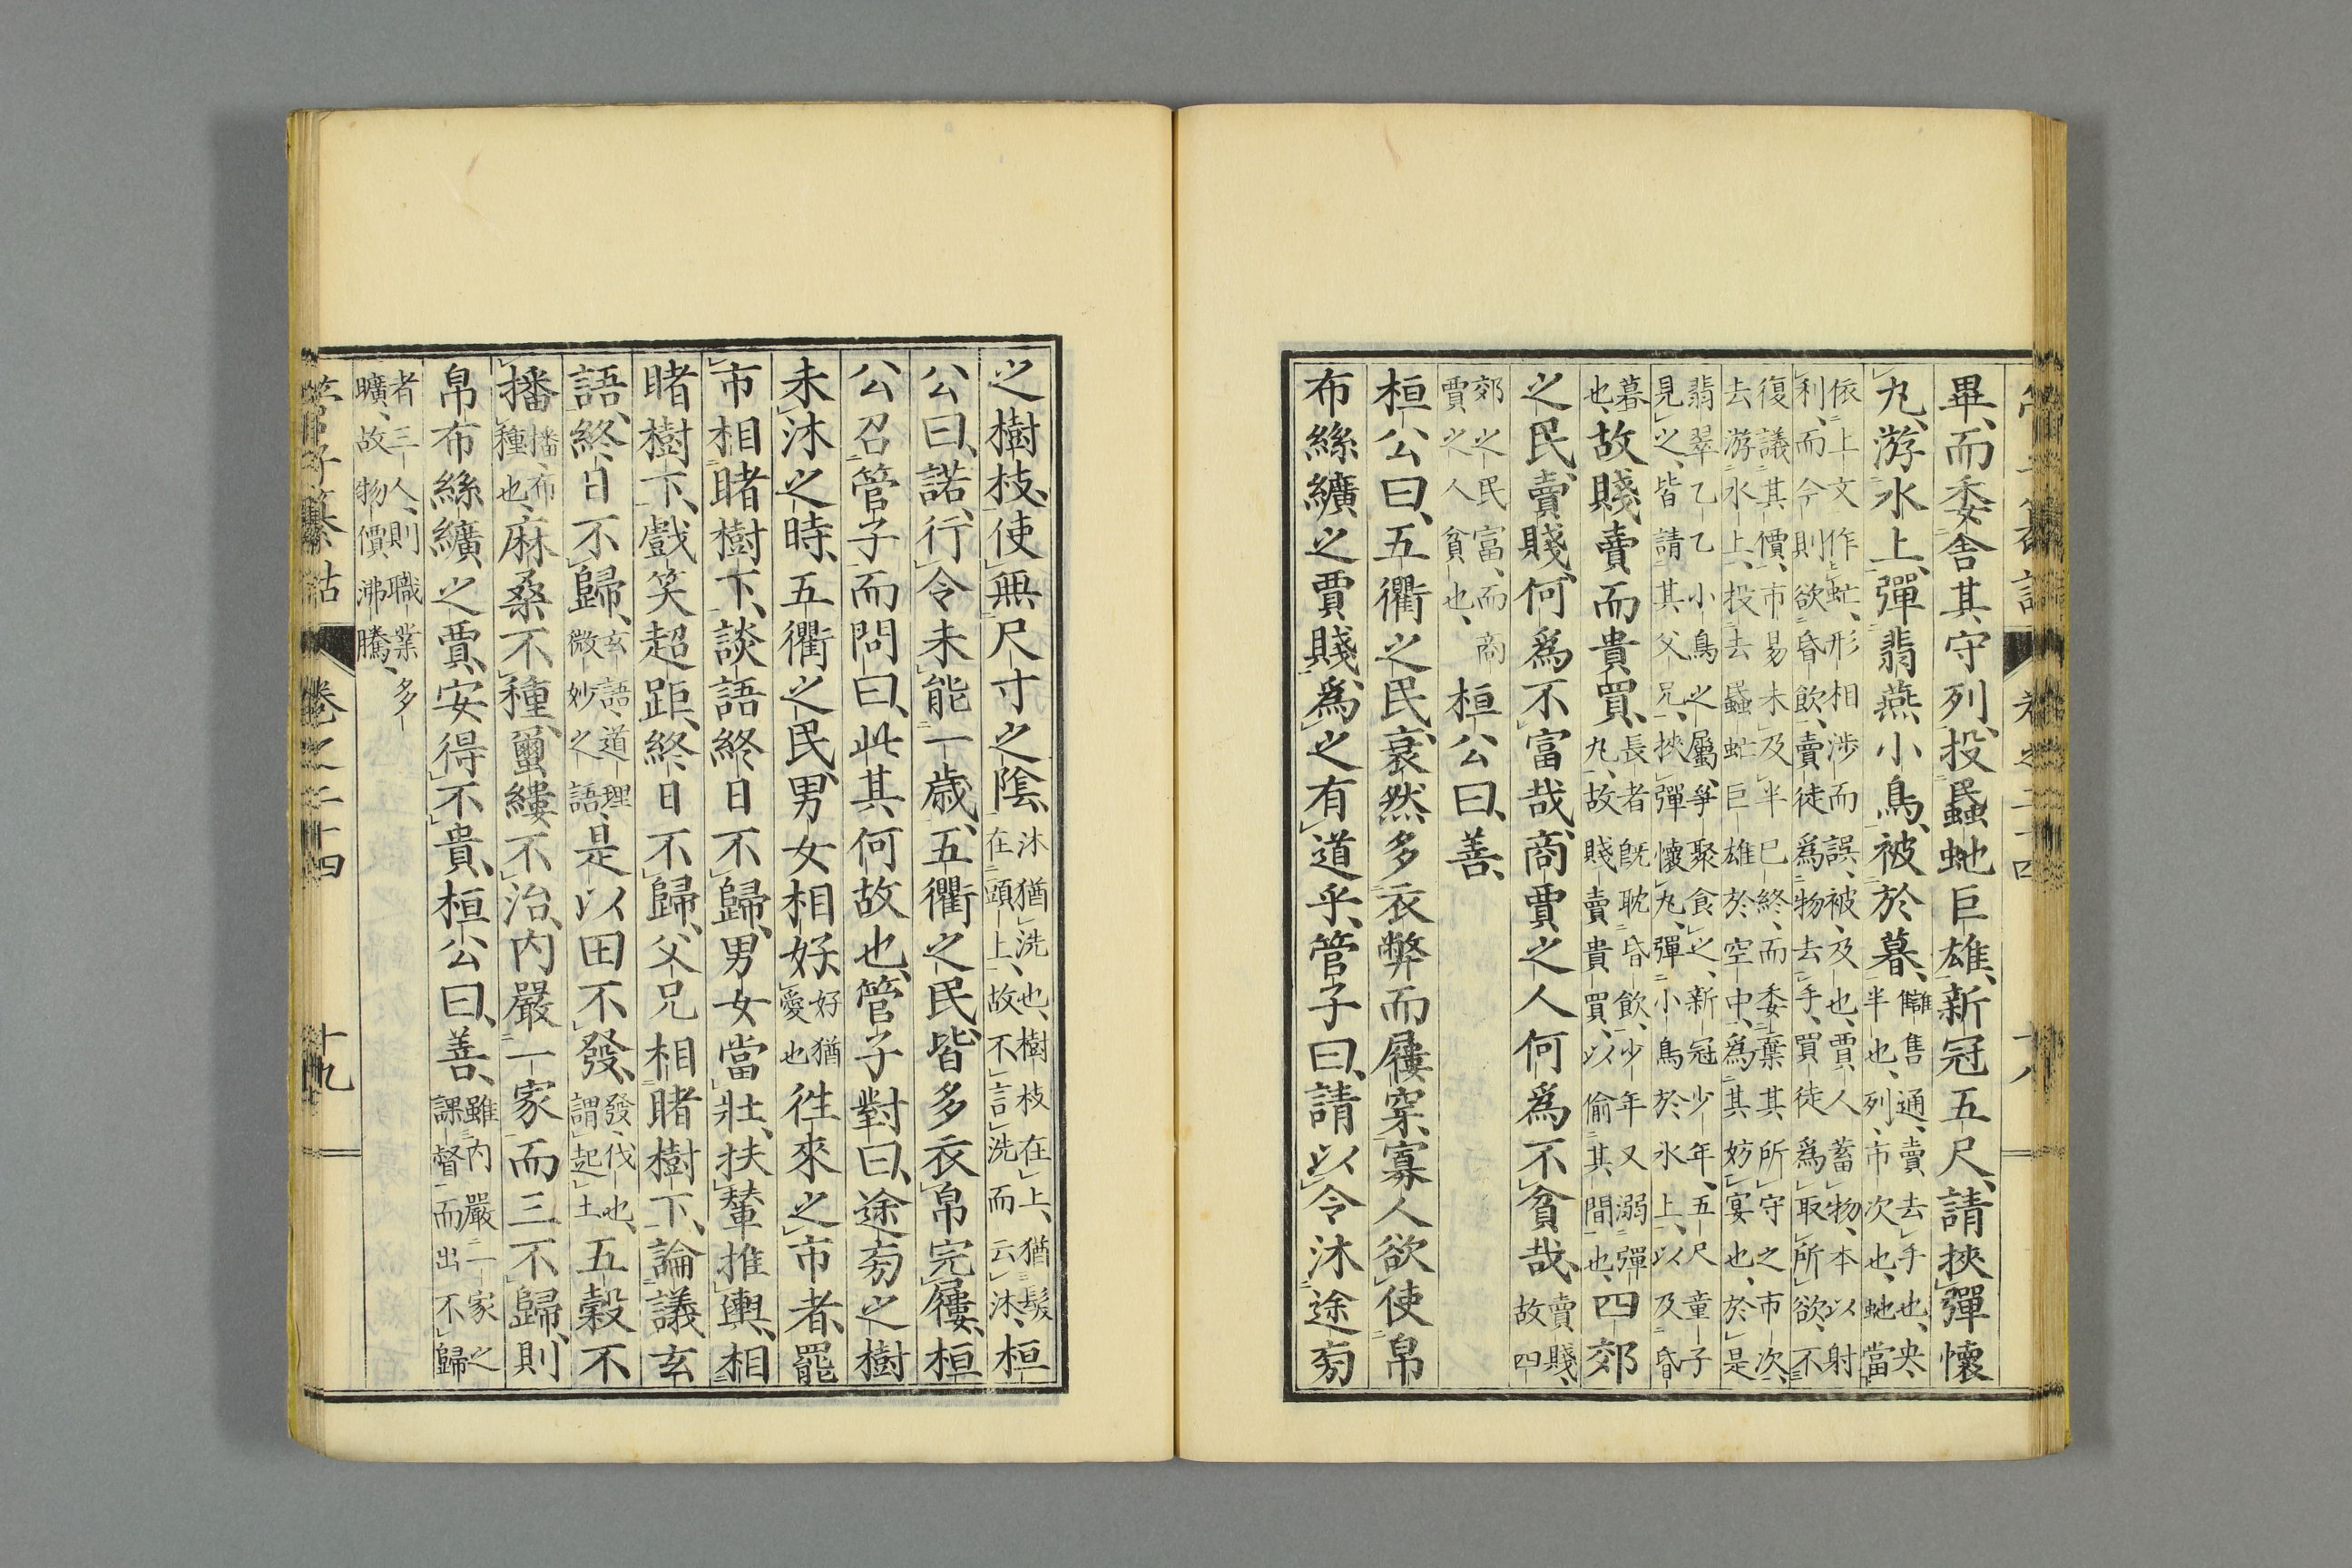 管子纂詁 卷之二十四 十八
畢、而委舍其守列、投蟁虵巨雄、新冠五尺、請挾彈懷
丸、游水上、彈翡燕小鳥、被於暮、
讎售通、賣去手也、央、
半也、列、市次也、虵當
依上文作虻、形相涉而誤、被、及也、賈人蓄物、本以射
利、而今則欲昏飲、賣徒爲物去手、買徒爲取所欲、不
復議其價、市易未及半已終、而委棄其所守之市次、
去游水上、投去蟁虻巨雄於空中、爲其妨宴也、於是
翡翠乙乙小鳥之屬、爭聚食之、新冠少年、五尺童子
見之、皆請其父兄、挾彈懷丸、彈小鳥於水上、以及昏
暮
也、
故賤賣而貴買、
長者既耽昏飲、少年又溺彈
丸、故賤賣貴買、以偷其間也、
四郊
之民、賣賤、何爲不富哉、商賈之人何爲不貧哉、
賣賤、
故四
郊之民富、而商
賈之人貧也、
桓公曰、善、
桓公曰、五衢之民、衰然多衣弊而屨穿、寡人欲使帛
布絲纊之賈賤、爲之有道乎、管子曰、請以令沐途旁
之樹枝、使無尺寸之陰、
沐猶洗也、樹枝在上、猶髮
在頭上、故不言洗而云沐、
桓
公曰、諾、行令未能一歲、五衢之民、皆多衣帛完屨、桓
公召管子而問曰、此其何故也、管子對曰、途旁之樹
未沐之時、五衢之民、男女相好、
好猶
愛也
徃來之市者、罷
市相睹樹下、談語終日不歸、男女當壯、扶輦推輿、相
睹樹下、戲笑超距、終日不歸、父兄相睹樹下、論議玄
語、終日不歸、
玄語、道理
微妙之語、
是以田不發、
發、伐也、
謂起土
五穀不
播
播、布
種也、
麻桑不種、蠒縷不治、內嚴一家、而三不歸、則
帛布絲纊之賈、安得不貴、桓公曰、善、
雖內嚴一家之
課督、而出不歸
者三人、則職業多
曠、故物價沸騰、
管子纂詁 卷之二十四 十九